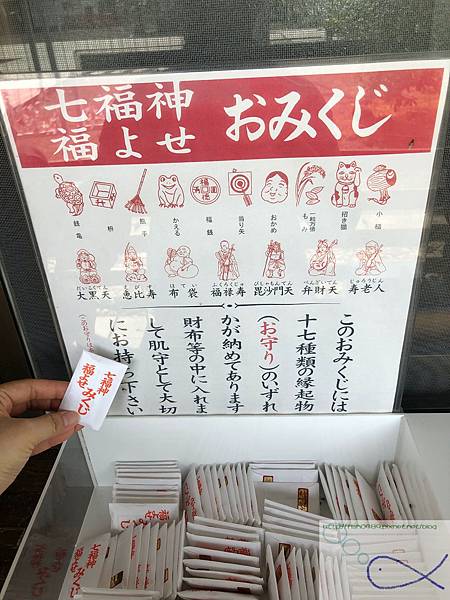 七福神
福よせ
おみくじ
小槌
招き猫
一粒万倍
もみ
おかめ
当り矢
福銭
かえる
熊手
枡
銭亀
だいこくてん
大黒天
えびす
恵比寿
ほてい
布袋
ふくろくじゅ
福禄寿
びしゃもんてん
毘沙門天
べんざいてん
弁財天
じゅろうじん
寿老人
このおみくじには
十七種類の縁起物
(お守り)のいずれ
かが納めてあります
財布等の中に入れま
して肌守として大切
にお持ち下さい
七福神
福よせみくじ